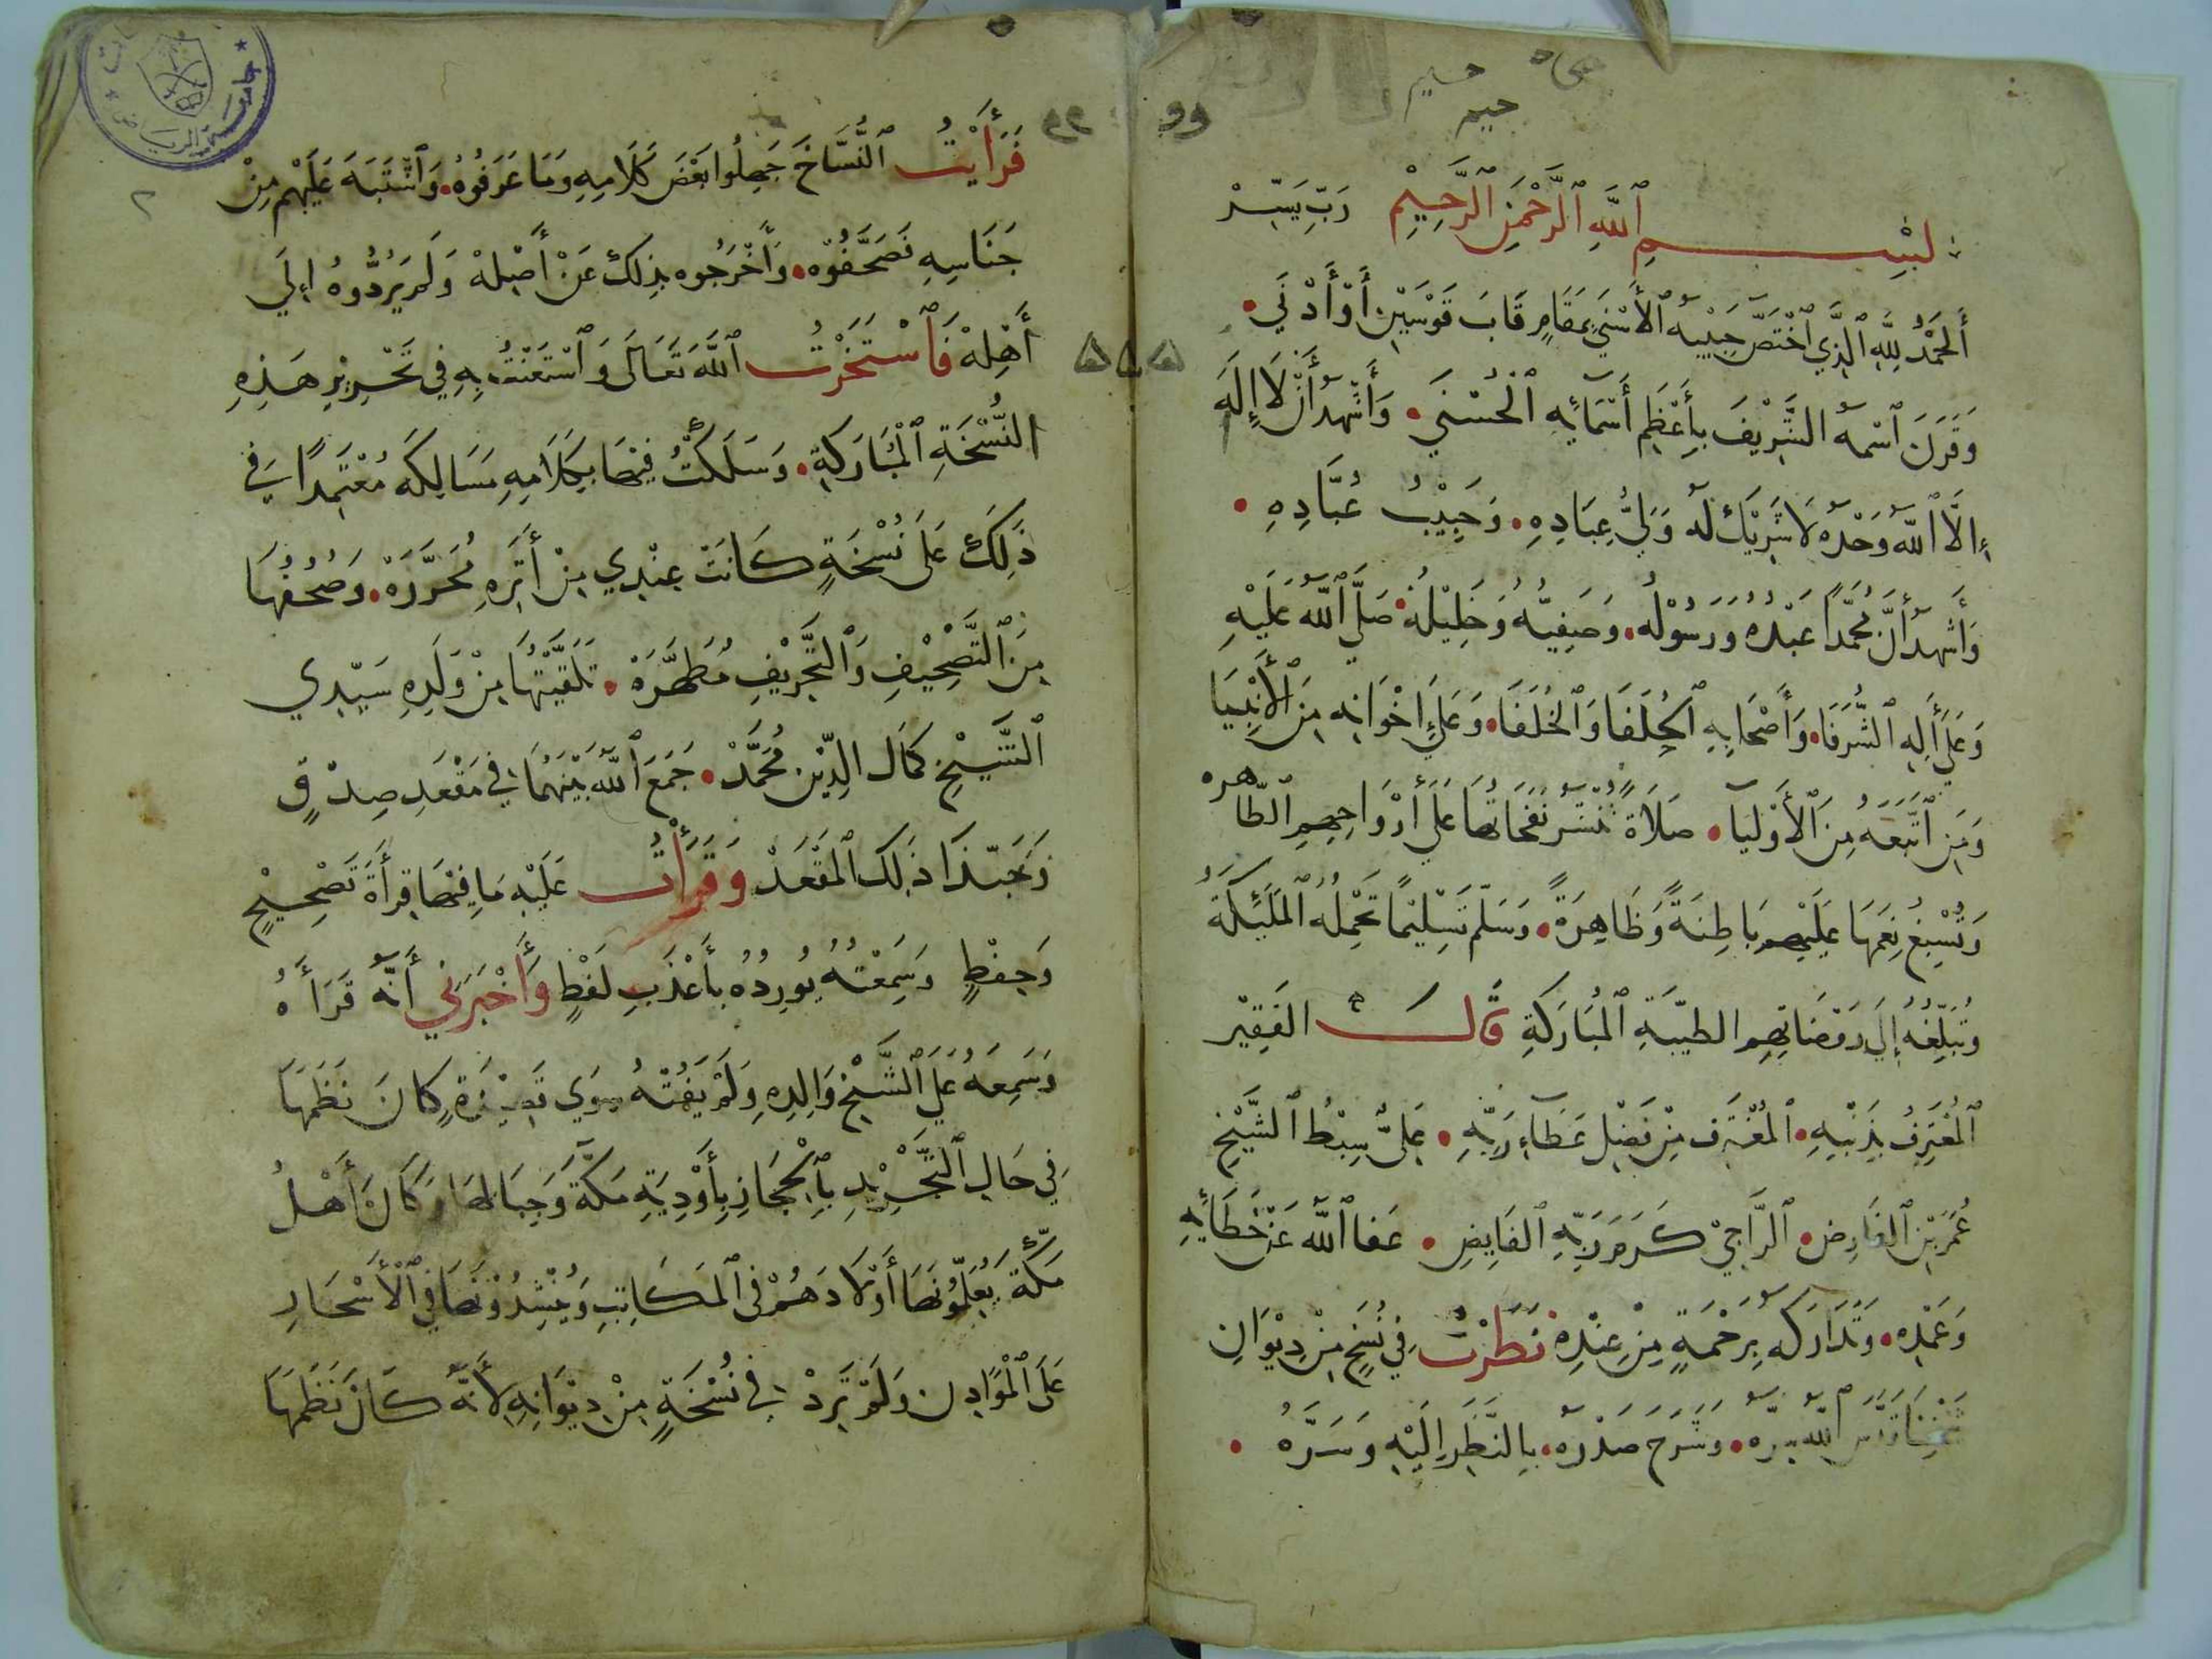 بِسْمِ ٱللَّهِ ٱلرَّحْمَنِ ٱلرَّحِيْمِ رَبِّ يَسِّرْ
أَلْحَمْدُ لِلَّهِ ٱلَّذِي ٱخْتَصَّ حَبِيْبَهُ ٱلأَسْنَي بِمَقَامِ قَابَ قَوْسَيْنِ أَوْ أَدْنَي
وَقَرَنَ ٱسْمَهُ الشَّرِيْفَ بِأَعْظَمِ أَسْمَآئِهِ ٱلْحُسْنَي وَأَشْهَدُ أَنْ لَا إِلَهَ
إِلَّا ٱللَّهُ وَحْدَهُ لَا شَرِيْكَ لَهُ وَلِيُّ عِبَادِهِ وَحَبِيْبُ عُبَّادِهِ
وَأَشْهَدُ أَنَّ مُحَمَّدًا عَبْدُهُ وَرَسُوْلُهُ وَصَفِيُّهُ وَخَلِيْلُهُ صَلَّي ٱللَّهُ عَلَيْهِ
وَعَلَى أَلِهِ ٱلشُّرَفَا وَأَصْحَابِهِ ٱلْحُلَفَا وَٱلْخُلَفَا وَعَلَى إِخْوَانِهِ مِنَ ٱلأَنْبِيَا
وَمَنِ ٱتَّبَعَهُ مِنَ ٱلأَوْلِيَآ صَلَاةً تُنْشَرُ نَفَحَاتُهَا عَلَي أَرْوَاحِهِمِ ٱلطَّاهره
وَتُسْبِغُ نِعَمَهَا عَلَيْهِمْ بَاطِنَةً وَظَاهِرَةً وَسَلَّمَ تَسْلِيْمًا تَحْمِلُهُ ٱلْمَلَئِكَةُ
وَتُبَلِّغُهُ إِلَى رَوْضَاتِهِمِ الطيِّبَةِ ٱلْمُبَارَكَةِ قَالَ الفَقِيْر
ٱلْمُعْتَرِفُ بِذَنْبِهِ ٱلْمُغْتَرِف مِنْ فَضْلِ عَطَآءِ رَبِّهِ عَلِيٌّ سِبْطُ ٱلشَّيْخِ
عُمَرَ بْنِ ٱلفَارِضِ ٱلرَّاجِيْ كَرَمَ رَبِّهِ ٱلفَايِضِ عَفَا ٱللَّهُ عَنْ خَطَائِهِ
وَعَمْدِهِ وَتَدَارَكَهُ بِرَحْمَةٍ مِنْ عِنْدِهِ نَظَرْتُ فِي نُسَخٍ مِنْ دِيْوَانِ
شَيْخِنَا قَدَّسَ ٱللَّهُ سِرَّهُ وَشَرَحَ صَدْرَهُ بِالنَّظَرِ إِلَيْهِ وَسَرَّهُ
فَرَأَيْتُ ٱلنُّسَّاخَ جَهِلُوا بَعْضَ كَلَامِهِ وَمَا عَرَفُوْهُ وَٱشْتَبَهَ عَلَيْهِم مِنْ
جَنَاسِهِ فَصَحَّفُوْهُ وَأَخْرَجُوه بِذلِكَ عَنْ أَصْلِهْ وَلَمْ يَرُدُّوهُ إِلَي
أَهْلِهْ فَٱسْتَخَرْتُ ٱللَّهَ تَعَالَى وَٱسْتَعَنْتُ بِهِ فِي تَحْرِيْرِ هَذِهِ
النُّسْخَةِ ٱلْمُبَارَكَةِ وَسَلَكْتُ فِيْهَا بِكَلَامِهِ مَسَالِكَهُ مُعْتَمِدًا فِي
ذَلِكَ عَلَى نُسْخَةٍ كَانَتْ عِنْدِي مِنْ أَثَرِهِ مُحَرَّرَهْ وَصُحُفُهَا
مِنَ ٱلتَّصْحِيْفِ وَٱلتَّحْرِيْفِ مُطَهَّرَهْ تَلَقَّيْتُهَا مِنْ وَلَدِهِ سَيِّدِي
ٱلشَّيْخِ كَمَال الدِّيْنِ مُحَمَّدْ جَمَعَ ٱللَّهُ بَيْنَهُمَا فِي مَقْعَدِ صِدْقٍ
وَحَبَّذَا ذَلِكَ ٱلْمَقْعَدْ وَقَرَأْتُ عَلَيْهِ مَا فِيْهَا قِرأَةَ تَصْحِيْحٍ
وَحِفْظٍ وَسَمِعْتُهُ يُورِدُهُ بِأَعْذَبِ لَفْظٍ وَأَخْبَرَنِي أَنَّهُ قَرَأَهُ
وَسَمِعَهُ عَلَى ٱلشَّيْخِ وَالِدِهِ وَلَمْ يَفُتْهُ سِوَي قَصِيْدَةٍ كَانَ نَظَمَهَا
فِي حَالِ ٱلتَّجْرِيْدِ بِٱلْحِجَازِ بِأَوْدِيَةِ مَكَّةَ وَجِبَالِهَا وَكَانَ أَهْلُ
مَكَّةَ يُعَلِّمُوْنَهَا أَوْلَادَهُمْ فِي ٱلْمَكَاتِبِ وَيُنْشِدُوْنَهَا فِي ٱلْأَسْحَارِ
عَلَى ٱلْمَوَادِن وَلَمْ تَرِدْ فِي نُسْخَةٍ مِنْ دِيْوَانِهِ لِأَنَّهُ كَانَ نَظَمَهَا